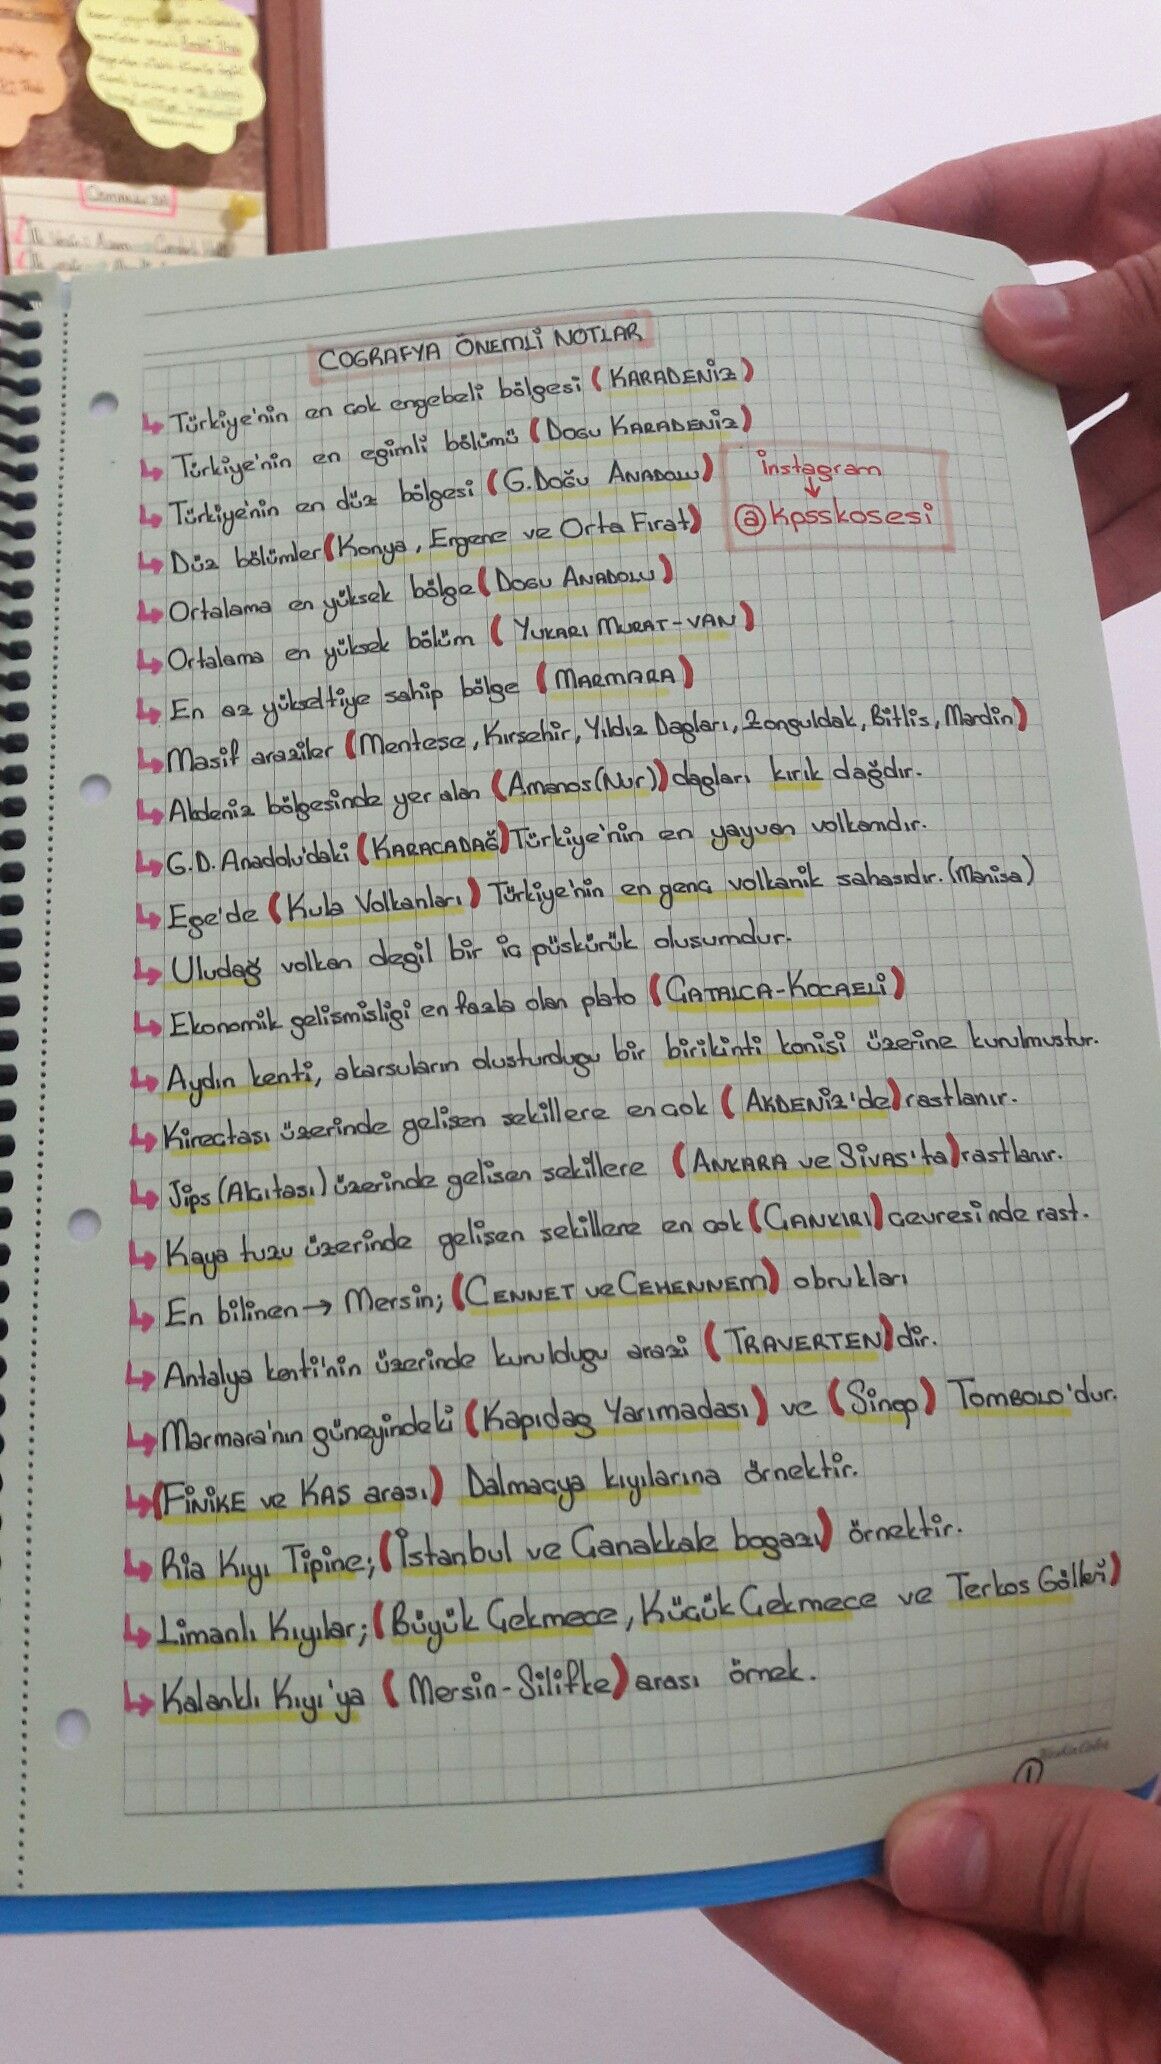 COGRAFYA ÖNEMLİ NOTLAR
Türkiye'nin en cok engebeli bölgesi (KARADENİZ)
Türkiye'nin en egimli bölümü (DOGU KARADENİZ)
Türkiye'nin en düz bölgesi (G.DOĞU ANADOLU)
instagram
@kpsskosesi
Düz bölümler (Konya, Ergene ve Orta Fırat)
Ortalama en yüksek bölge (DOGU ANADOLU)
Ortalama en yüksek bölüm (YUKARI MURAT-VAN)
En az yükseltiye sahip bölge (MARMARA)
Masif araziler (Mentese, Kırsehir, Yıldız Dagları, Zonguldak, Bitlis, Mardin)
Akdeniz bölgesinde yer alan (Amanos(Nur)) dagları kırık dağdır.
G.D. Anadolu'daki (KARACADAĞ) Türkiye'nin en yayvan volkanıdır.
Ege'de (Kula Volkanları) Türkiye'nin en genc volkanik sahasıdır. (Manisa)
Uludağ volkan degil bir ic püskürük olusumdur.
Ekonomik gelismisligi en fazla olan plato (CATALCA-KOCAELİ)
Aydın kenti, akarsuların olusturdugu bir birikinti konisi üzerine kurulmustur.
Kirectası üzerinde gelisen sekillere en cok (AKDENİZ'de) rastlanır.
Jips (Alcıtası) üzerinde gelisen sekillere (ANKARA ve SİVAS'ta) rastlanır.
Kaya tuzu üzerinde gelisen sekillere en cok (CANKIRI) cevresinde rast.
En bilinen → Mersin; (CENNET ve CEHENNEM) obrukları
Antalya kenti'nin üzerinde kuruldugu arazi (TRAVERTEN) dir.
Marmara'nın güneyindeki (Kapıdag Yarımadası) ve (Sinop) TOMBOLO'dur.
(FİNİKE ve KAS arası) Dalmacya kıyılarına örnektir.
Ria Kıyı Tipine; (İstanbul ve Canakkale bogazı) örnektir.
Limanlı Kıyılar; (Büyük Cekmece, Kücük Cekmece ve Terkos Gölleri)
Kalanklı Kıyı'ya (Mersin-Silifke) arası örnek.
1